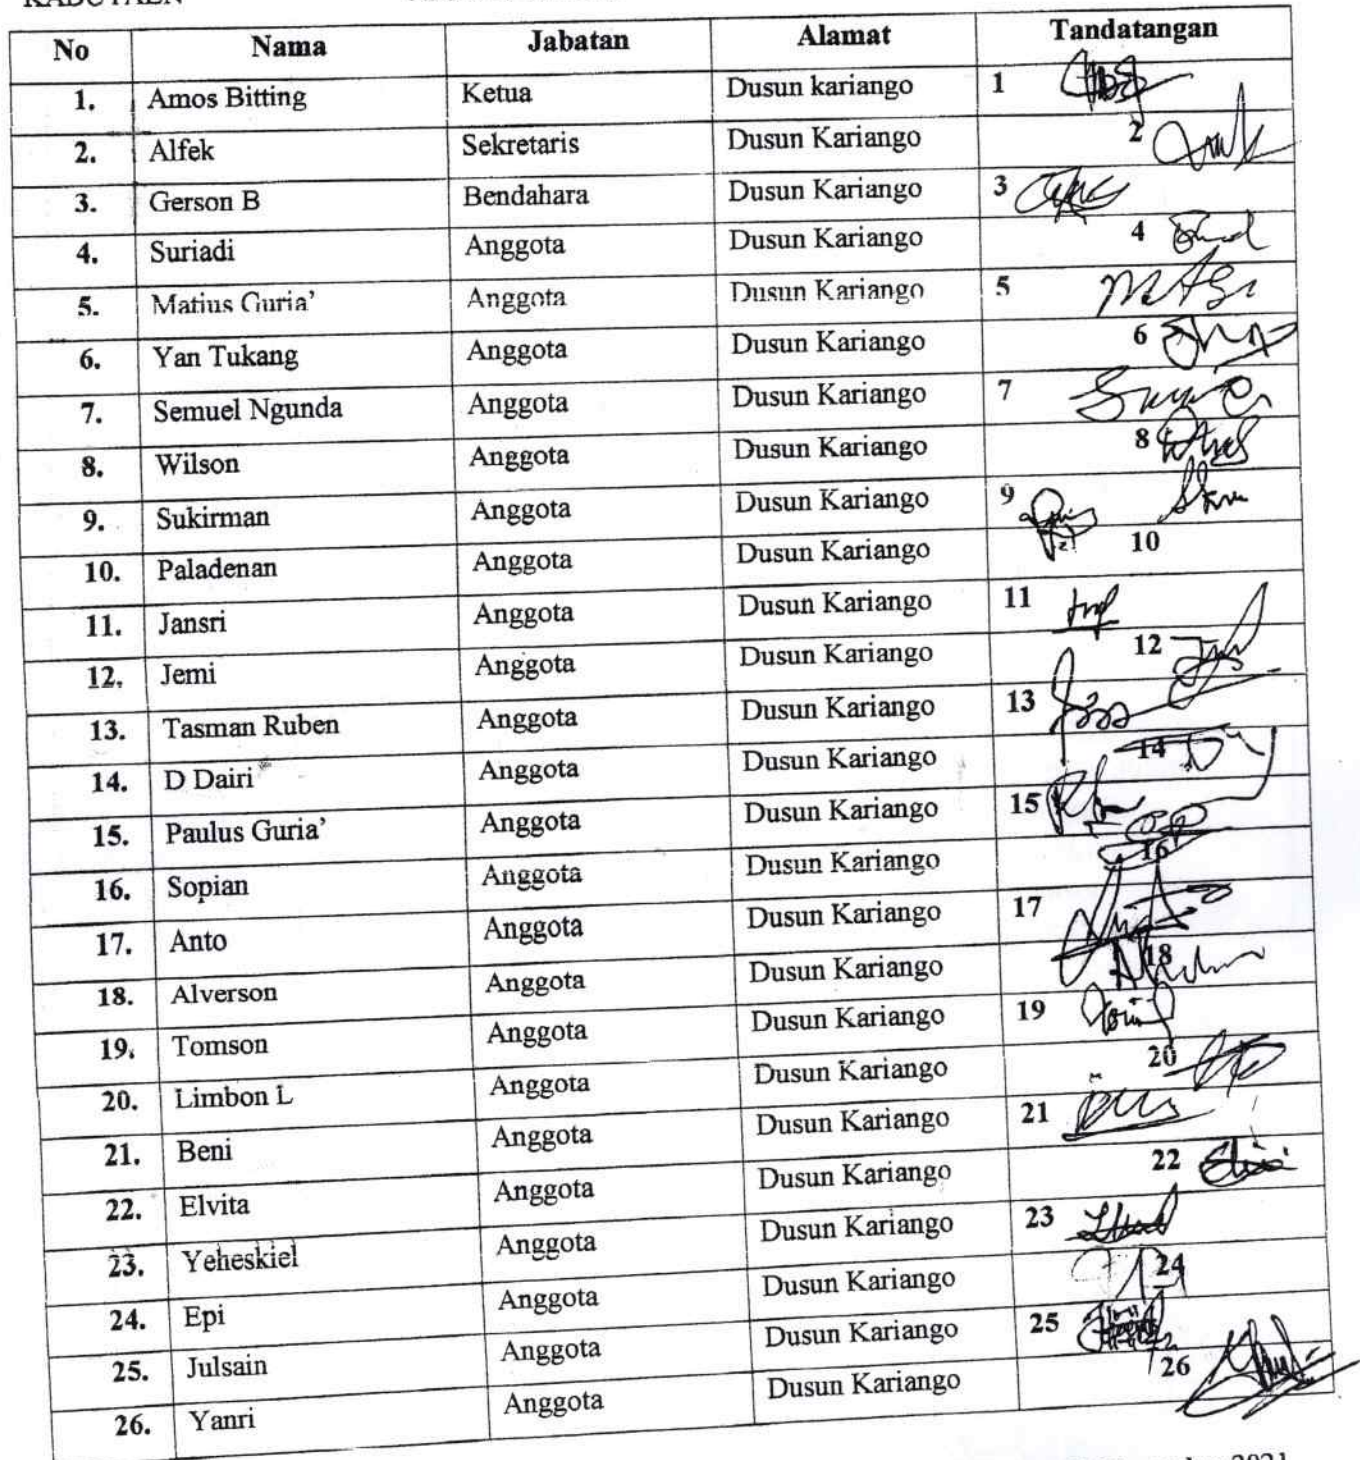 No Nama Jabatan Alamat Tandatangan
1. Amos Bitting Ketua Dusun kariango 1
2. Alfek Sekretaris Dusun Kariango 2
3. Gerson B Bendahara Dusun Kariango 3
4. Suriadi Anggota Dusun Kariango 4
5. Matius Guria’ Anggota Dusun Kariango 5
6. Yan Tukang Anggota Dusun Kariango 6
7. Semuel Ngunda Anggota Dusun Kariango 7
8. Wilson Anggota Dusun Kariango 8
9. Sukirman Anggota Dusun Kariango 9
10. Paladenan Anggota Dusun Kariango 10
11. Jansri Anggota Dusun Kariango 11
12. Jemi Anggota Dusun Kariango 12
13. Tasman Ruben Anggota Dusun Kariango 13
14. D Dairi Anggota Dusun Kariango 14
15. Paulus Guria’ Anggota Dusun Kariango 15
16. Sopian Anggota Dusun Kariango 16
17. Anto Anggota Dusun Kariango 17
18. Alverson Anggota Dusun Kariango 18
19. Tomson Anggota Dusun Kariango 19
20. Limbon L Anggota Dusun Kariango 20
21. Beni Anggota Dusun Kariango 21
22. Elvita Anggota Dusun Kariango 22
23. Yeheskiel Anggota Dusun Kariango 23
24. Epi Anggota Dusun Kariango 24
25. Julsain Anggota Dusun Kariango 25
26. Yanri Anggota Dusun Kariango 26
2021